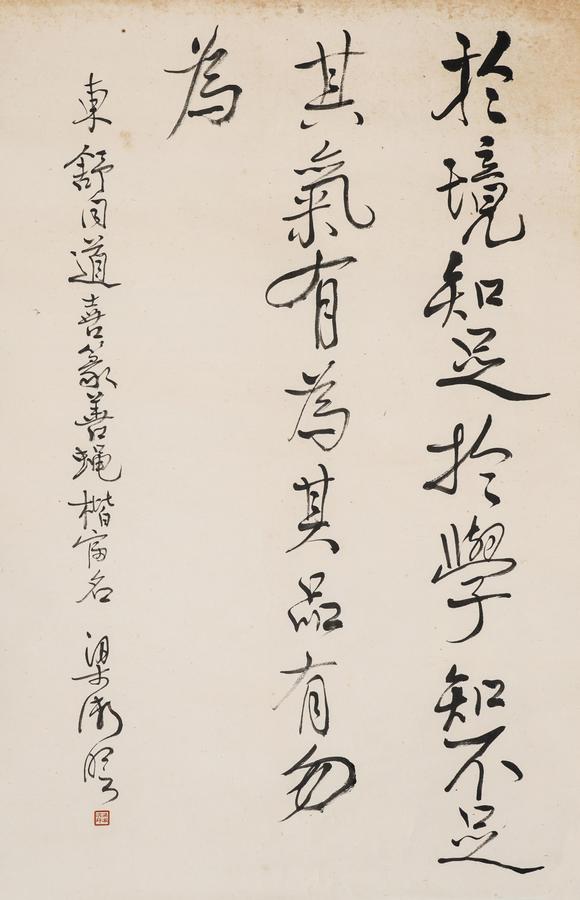 於境知足於學知不足
其氣有為其品有勿
為
東舒同道喜篆善蝇楷富名 梁漱